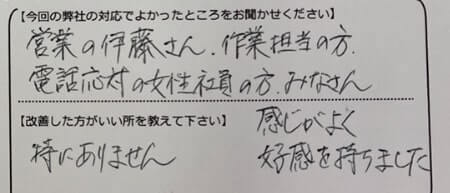 【今回の弊社の対応でよかったところをお聞かせください】
営業の伊藤さん.作業担当の方.
電話応対の女性社員の方.みなさん
感じがよく
好感を持ちました
【改善した方がいい所を教えて下さい】
特にありません